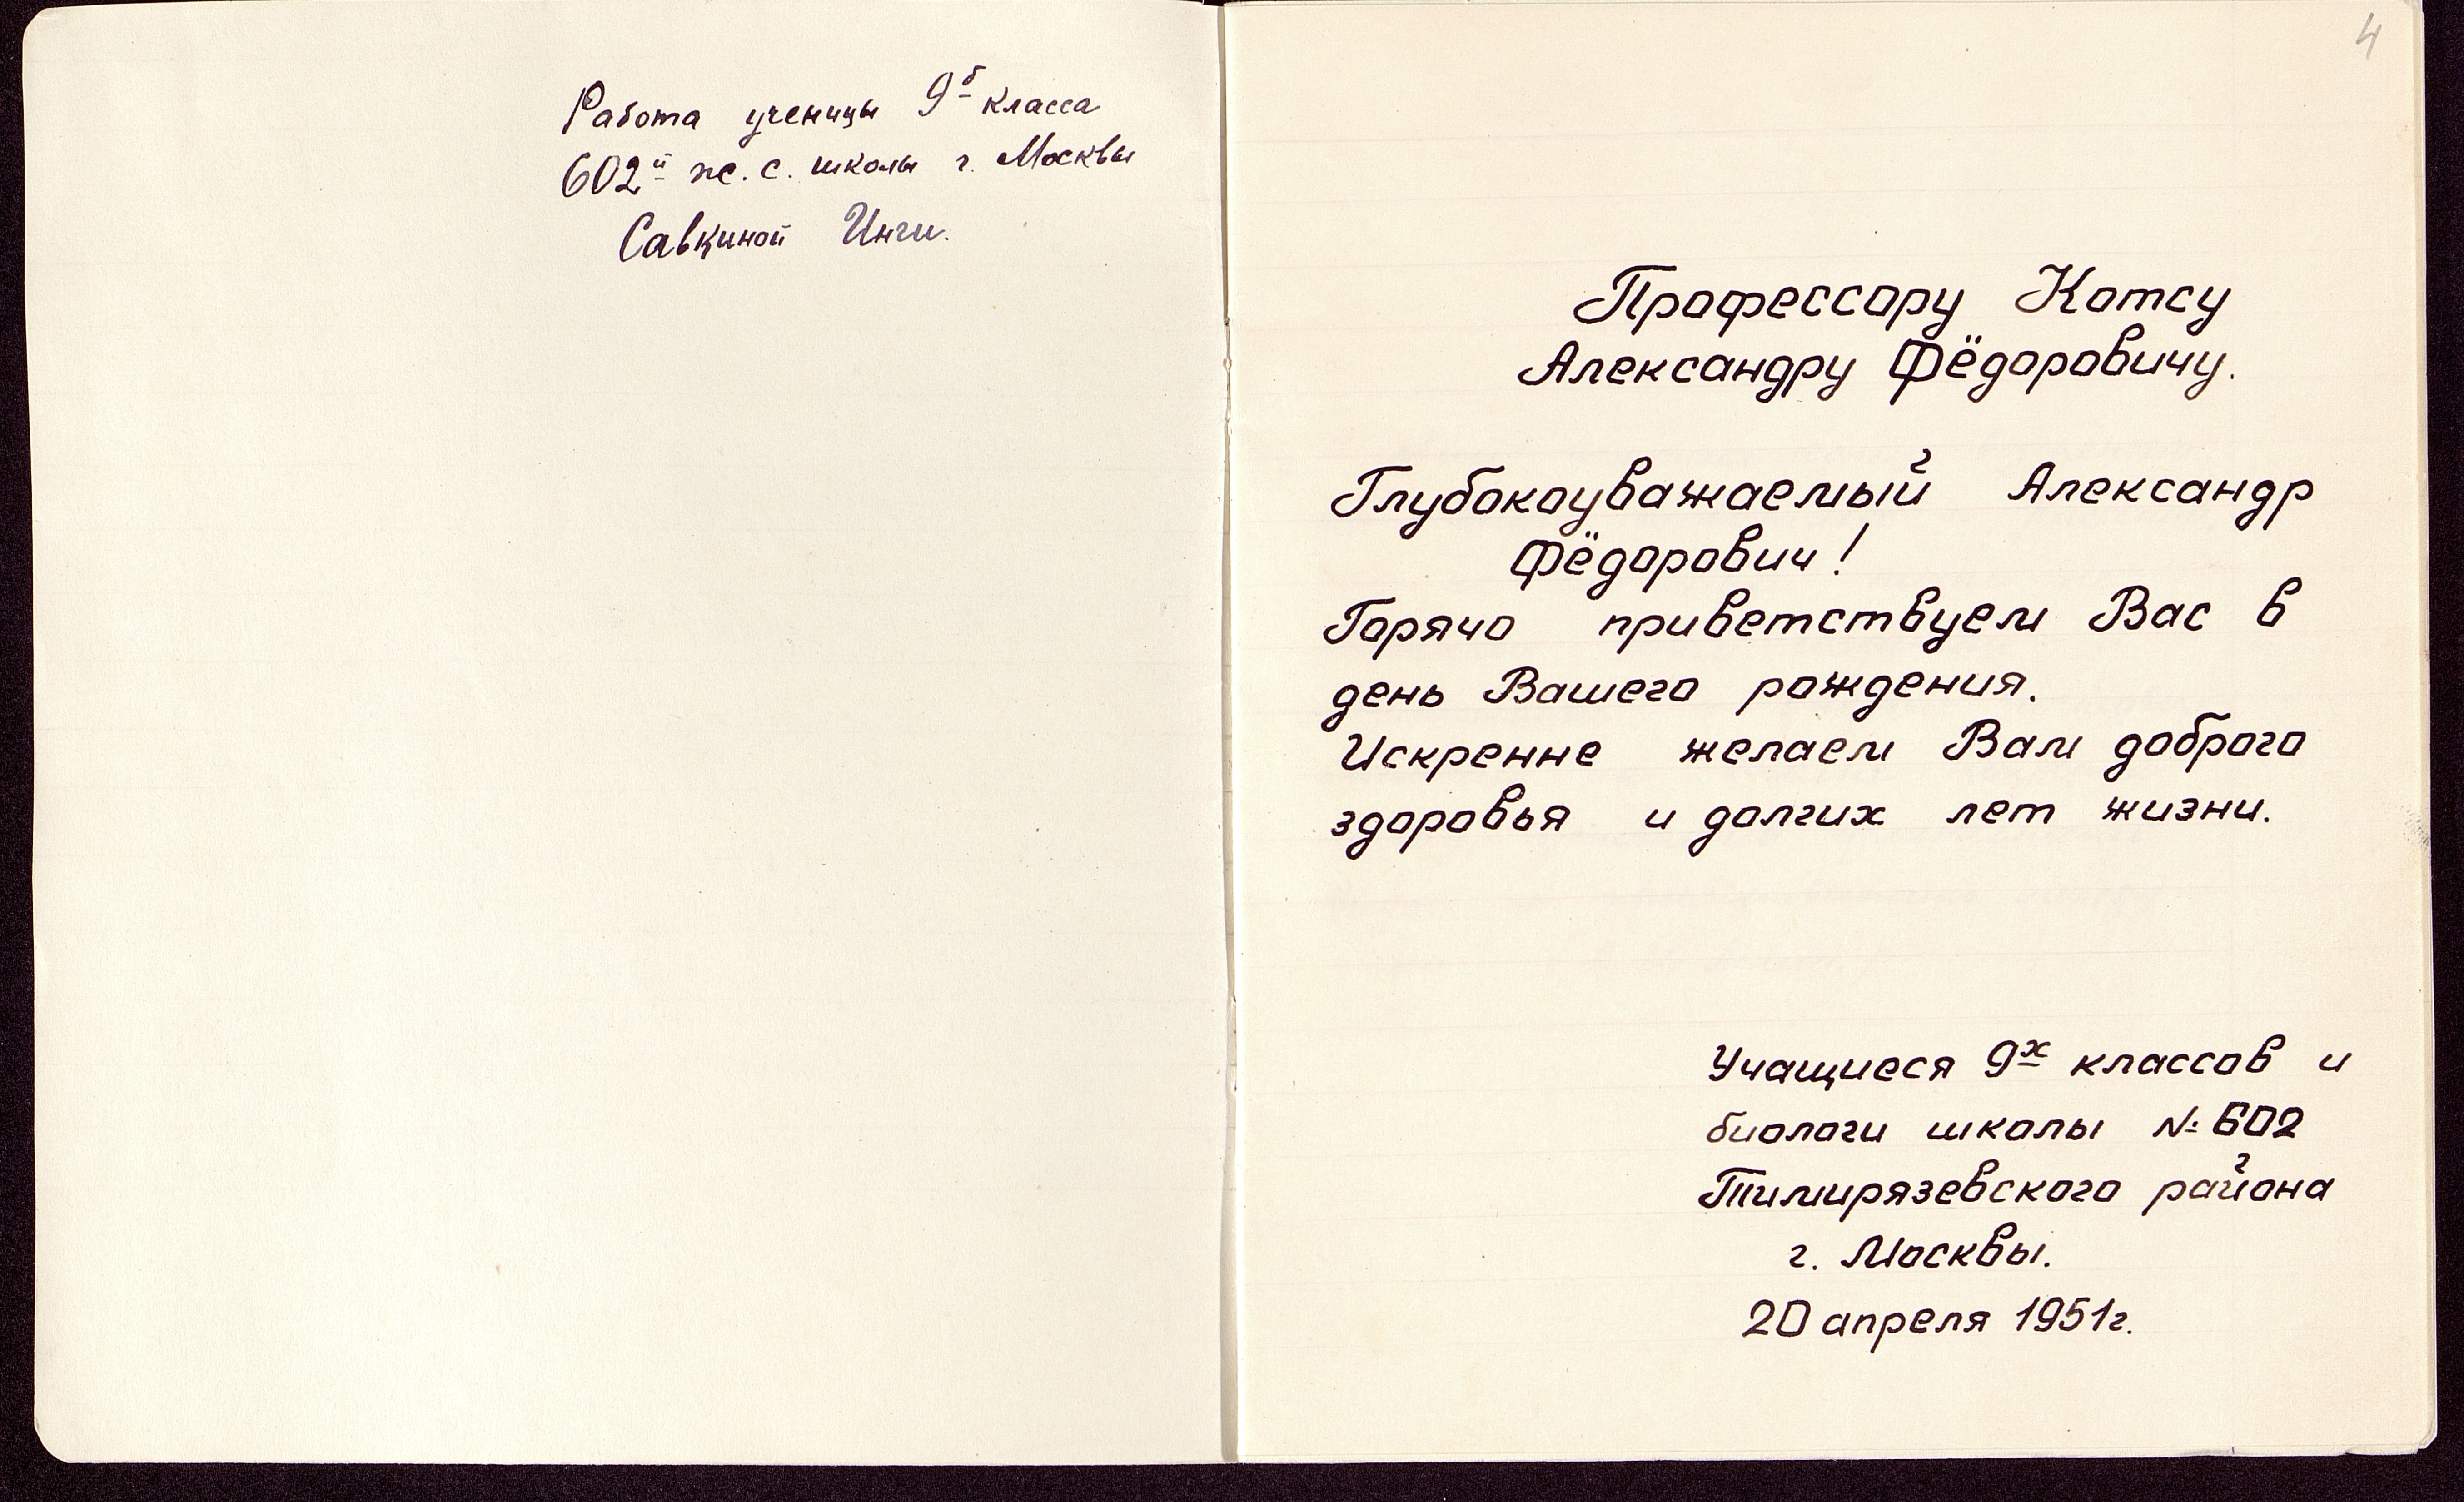 Работа ученицы 9б класса
602й ж.с. школы г. Москвы
Савкиной Инги.
4
Профессору Котсу
Александру Фёдоровичу.
Глубокоуважаемый Александр
Фёдорович!
Горячо приветствуем Вас в
день Вашего рождения.
Искренне желаем Вам доброго
здоровья и долгих лет жизни.
Учащиеся 9х классов и
биологи школы № 602
Тимирязевского района
г. Москвы.
20 апреля 1951г.